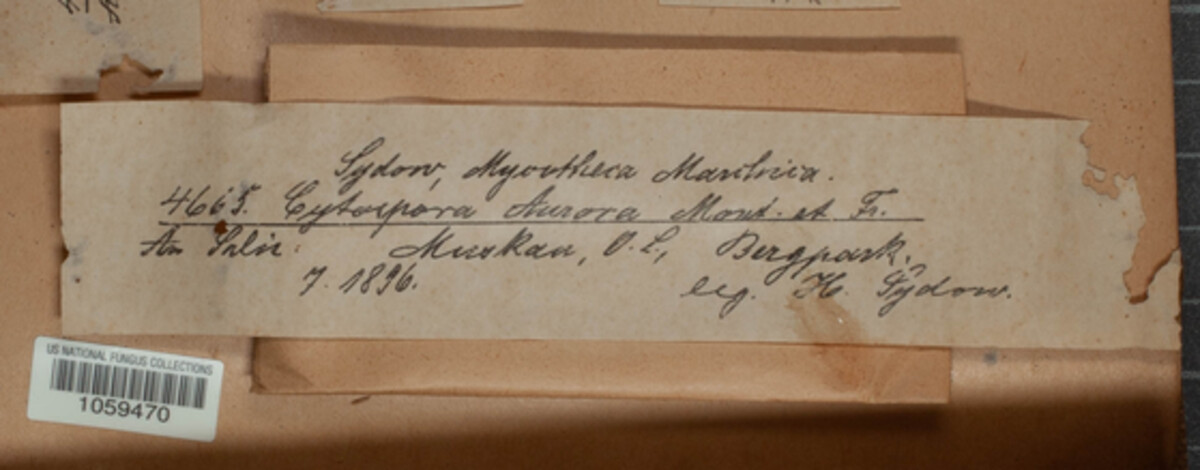 Sydow, Mycotheca Marchica.
4665. Cytospora Aurora Mont. et Fr.
An Salix: Muskau, O. L., Bergpark.
7. 1896. leg. H. Sydow.
US NATIONAL FUNGUS COLLECTIONS
1059470